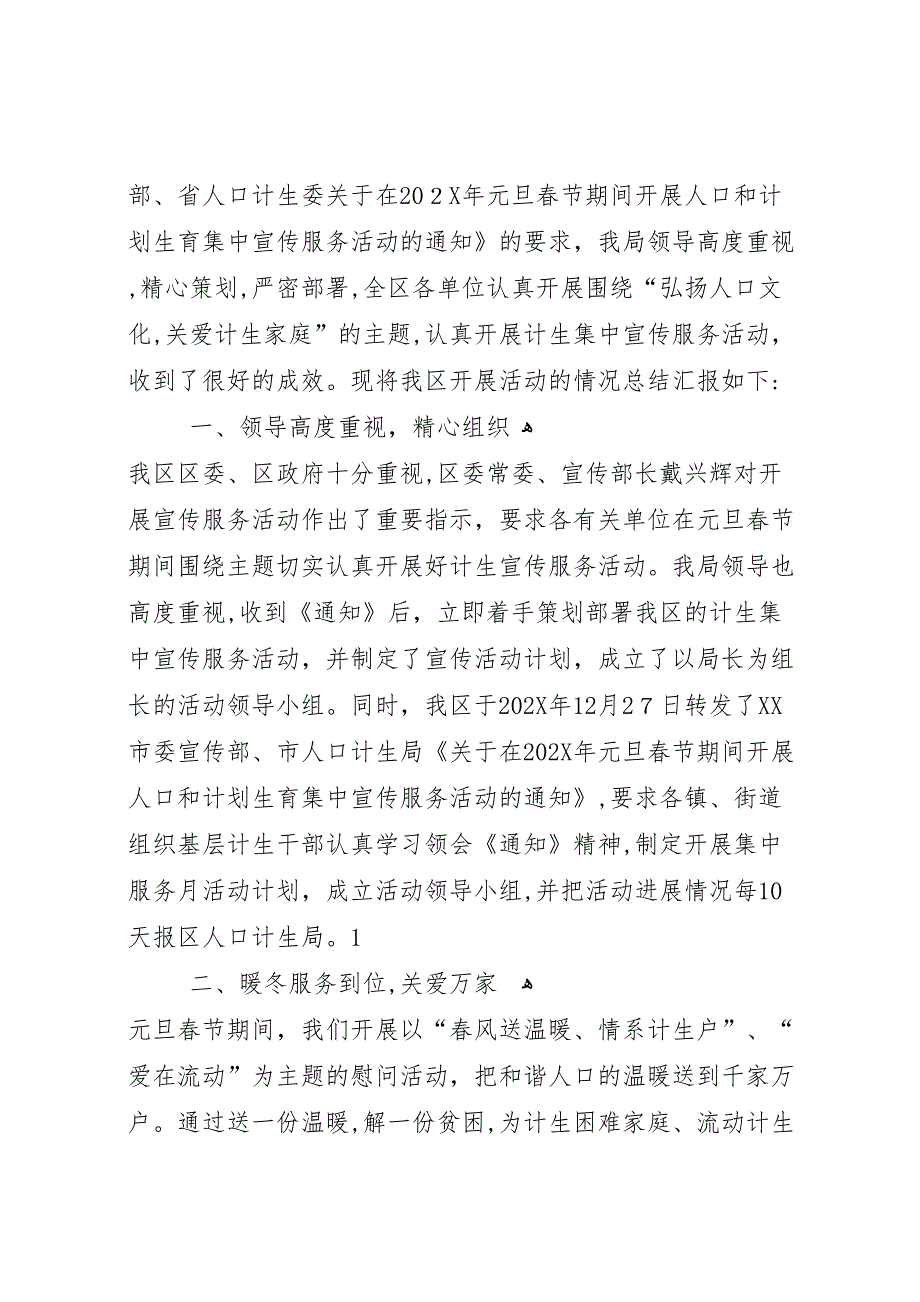 部、省人口计生委关于在20２X年元旦春节期间开展人口和计
划生育集中宣传服务活动的通知》的要求，我局领导高度重视
,精心策划,严密部署,全区各单位认真开展围绕“弘扬人口文
化,关爱计生家庭”的主题,认真开展计生集中宣传服务活动，
收到了很好的成效。现将我区开展活动的情况总结汇报如下:
一、领导高度重视，精心组织 ﻫ
我区区委、区政府十分重视,区委常委、宣传部长戴兴辉对开
展宣传服务活动作出了重要指示，要求各有关单位在元旦春节
期间围绕主题切实认真开展好计生宣传服务活动。我局领导也
高度重视,收到《通知》后，立即着手策划部署我区的计生集
中宣传服务活动，并制定了宣传活动计划，成立了以局长为组
长的活动领导小组。同时，我区于202X年12月2７日转发了XX
市委宣传部、市人口计生局《关于在202X年元旦春节期间开展
人口和计划生育集中宣传服务活动的通知》,要求各镇、街道
组织基层计生干部认真学习领会《通知》精神,制定开展集中
服务月活动计划，成立活动领导小组,并把活动进展情况每10
天报区人口计生局。1
二、暖冬服务到位,关爱万家 ﻫ
元旦春节期间，我们开展以“春风送温暖、情系计生户”、“
爱在流动”为主题的慰问活动，把和谐人口的温暖送到千家万
户。通过送一份温暖,解一份贫困,为计生困难家庭、流动计生